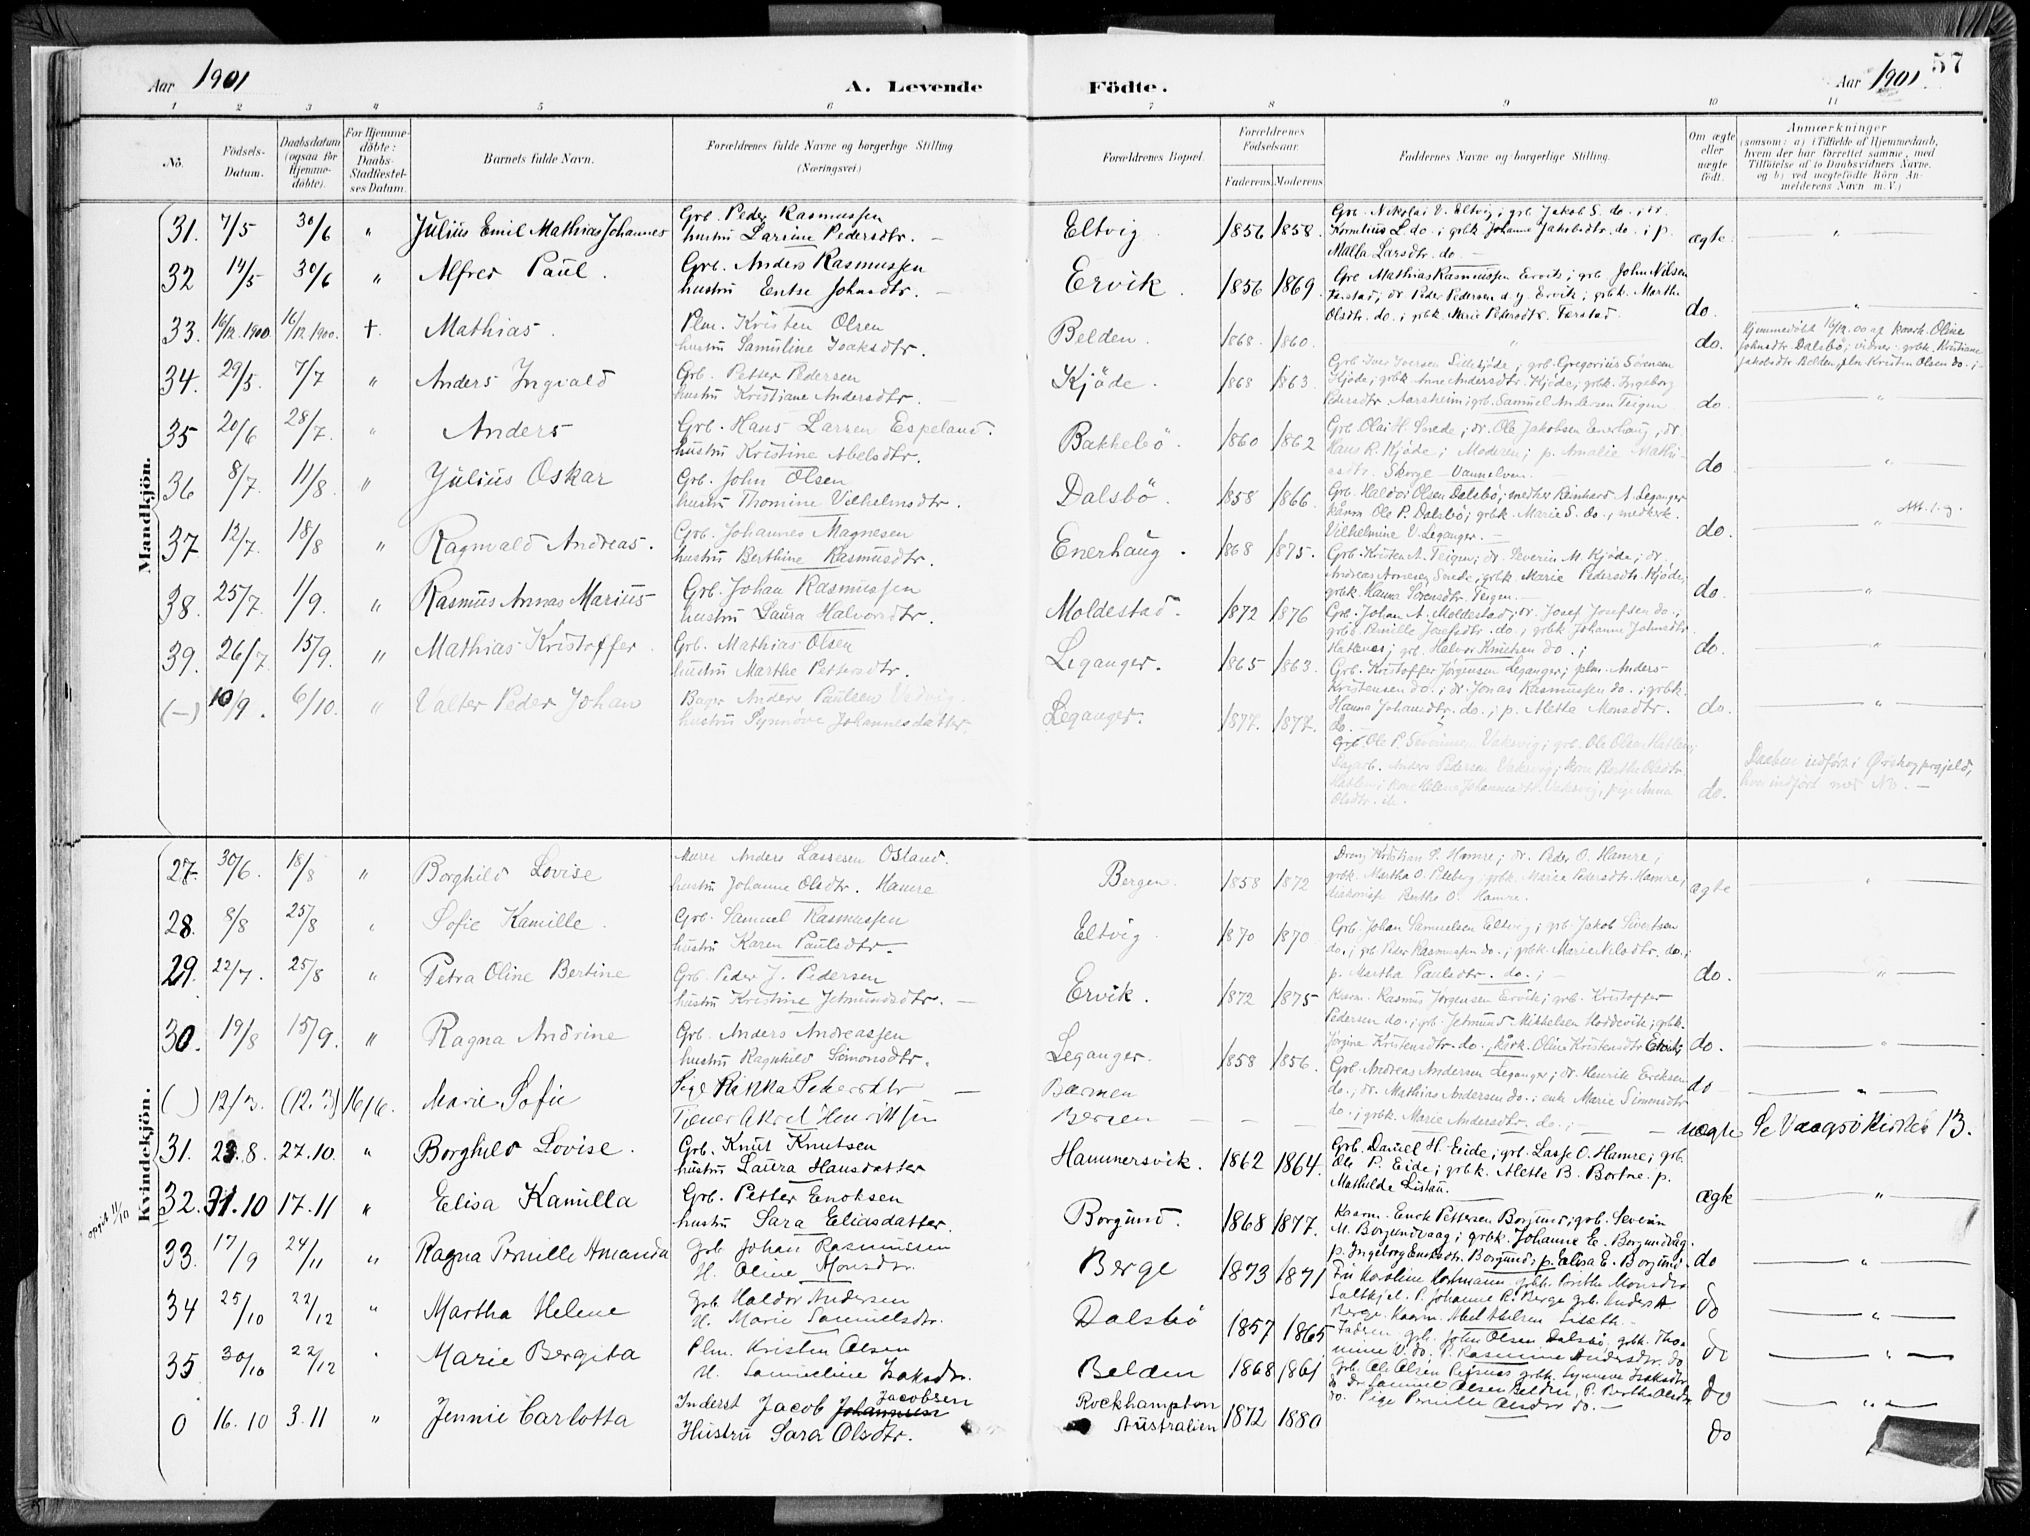 Aar 1901
A. Levende
Födte.
Aar 1901
57
1 2 3 4 5 6 7 8 9 10 11
No.
Födsels-Datum.
Daabsdatum (ogsaa for Hjemmedöbte).
For Hjemmedöbte: Daabs-Stadfæstelses Datum.
Barnets fulde Navn.
Forældrenes fulde Navne og borgerlige Stilling (Næringsvei.)
Forældrenes Bopæl.
Forældrenes Födselsaar.
Faderens Moderens
Faddernes Navne og borgerlige Stilling.
Om ægte eller uægte födt.
Anmærkninger
(saasom: a) i Tilfælde af Hjemmedaab, hvem der har forrettet samme, med Tilföielse af to Daabsvidners Navne, og b) ved uægtefödte Börn Anmelderens Navn m. V.)
Mandkjön.
31. 7/5 30/6 " Julius Emil Mathias Johannes
Grb. Peder Rasmussen
hustru Larsine Pedersdtr. —
Eltvig 1856 1858.
Grb. Nikolai V. Eltvig; grb. Jakob S. do.; dr.
Kornelius L. do.; grbk. Johanne Jakobsdtr. do.; p.
Malla Larsdtr. do. —
ægte — " —
32 14/5 30/6 " Alfred Paul.
Grb. Anders Rasmussen
hustru Entse Johnsdtr. —
Ervik. 1856 1869.
Grb. Mathias Rasmussen Ervik; grb. John Nilsen
Færstad; dr. Peder Pedersen d.y. Ervik; grbk. Marthe
Olsdtr. do.; grbk. Marie Petersdtr. Færstad.
do. — " —
33. 16/12. 1900 16/12. 1900. + Mathias.
Plm. Kristen Olsen
hustru Samuline Isaksdtr.
Belden. 1868. 1860. " do.
Hjemmedöbt 16/12. 00 af kaark. Oline
Johnsdtr. Dalsbö; vidner: grbk. Kristiane
Jakobsdtr. Belden, plm Kristen Olsen do. ;-
34. 29/5. 7/7 " Anders Ingvald
Grb. Petter Pedersen
hustru Kristiane Andersdtr. —
Kjöde. 1868 1863.
Grb. Ivar Iversen Sillekjöde; grb. Gregorius Sörensen
Kjöde; grbk. Anne Andersdtr. Kjöde; grbk. Ingeborg
Pedersdtr. Aarsheim; grb. Samuel Andersen Teigen
do — " —
35 20/6 28/7. " Anders
Grb. Hans Larsen Espeland.
hustru Kristine Abelsdtr.
Bakkebö. 1860 1862
Grb. Olai H. Smede; dr. Ole Jakobsen Enerhaug, dr.
Hans R. Kjöde; Moderen; p. Amalie Mathi-
asdtr. Skorge Vannelven. —
do — " —
36 8/7. 11/8. " Julius Oskar
Grb. John Olsen
hustru Thomine Vilhelmsdtr.
Dalsbö. 1858 1866.
Grb. Haldor Olsen Dalsbö; medhr. Reinhard A. Leganger
kaarm Ole P. Dalsbö; grbk. Marie S. do.; medhk.
Vilhelmine V. Leganger. —
do. — " —
37. 12/7. 18/8 " Ragnvald Andreas.
Grb. Johannes Magnesen
hustru Berthine Rasmusdtr.
Enerhaug. 1868 1875.
Grb. Kristen A. Teigen; dr. Severin M. Kjöde; dr.
Andreas Arnesen Smede; grbk. Marie Pedersdtr. Kjöde;
grbk. Hanna Sörensdtr. Teigen. —
do. — " —
38. 25/7. 1/9. " Rasmus Annas Marius
Grb. Johan Rasmussen
hustru Laura Halvorsdtr.
Moldestad. 1872 1876
Grb. Johan A. Moldestad; dr. Josef Josefsen do.;
grbk. Pernille Josefsdtr. do.; grbk. Johanne Johnsdtr.
Hatlenes; grb. Halvor Knutsen do.;
do. — " —
39. 26/7 15/9. " Mathias Kristoffer
Grb. Mathias Olsen
hustru Marthe Pettersdtr.
Leganger. 1865 1863.
Grb. Kristoffer Jörgensen Leganger; plm. Anders
Kristensen do.; dr. Jonas Rasmussen do.; grbk.
Hanna Johansdtr. do.; p. Alette Monsdtr.
do. —
do. — " —
(—) 10/9. 6/10. " Valter Peder Johan
Bager Anders Paulsen Vedvig.
hustru Synnöve Johannesdatter.
Leganger. 1877. 1877.
Grb. Ole P. Severinsen Vaksvig; grb. Ole Olsen Hatlen;
Dagarb. Anders Pedersen Vaksvig; Kone Berthe Olsdtr
Hatlen; Kone Helene Johannesdtr. Vaksvig; pige Anna
Olsdtr. ib.
do.
Daaben udfört i Örskog prgjeld,
hvor indfört med No. —
Kvindekjön.
27. 30/6. 18/8 " Borghild Lovise
Murer Anders Lassesen Ostand.
hustru Johanne Olsdtr. Hamre
Bergen. 1858 1872
Dreng Kristian P. Hamre; dr. Peder O. Hamre;
grbk. Martha O. Releberg; grbk. Maria Pedersdtr. Hamre;
diakonisse Berthe O. Hamre.
ægte — " —
28. 8/8 25/8 " Sofie Kamille.
Grb. Samuel Rasmussen
hustru Karen Paulsdtr. —
Eltvig 1870 1870
Grb. Johan Samuelsen Eltvig; grb. Jakob Sivertsen
do.; grb. Peder Rasmussen do.; grbk. Marie Nilsdtr. do.;
p. Martha Paulsdtr. do.; —
do. — " —
29. 22/7. 25/8 " Petra Oline Bertine
Grb. Peder J. Pedersen
hustru Kristine Jetmundsdtr. —
Ervik. 1872 1875
Kaarm. Rasmus Jörgensen Ervik; grb. Kristoffer
Pedersen do.; grb. Jetmund Mikkelsen Hoddevik; grbk.
Jörgine Kristensdtr. do. kark. Oline Kristensdtr Ervik;
do. — " —
30. 19/8 15/9. " Ragna Andrine
Grb. Anders Andreassen
hustru Ragnhild Simonsdtr.
Leganger. 1858 1856.
Grb. Andreas Andersen Leganger; dr. Henrik Eriksen
do.; dr. Mathias Andersen do.; enk. Marie Simonsdtr
do.; grbk. Marie Andersdtr. do.; —
do — " —
( ) 12/3. (12.3) 16/6. Marie Sofie
Pige Rikka Pedersdtr —
Tjener Aksel Henriksen
Barmen
Bergen — — — — uægte Se Vaagsö Kirkeb 13.
31. 23.8. 27.10. " Borghild Lovise.
Grb. Knut Knutsen
hustru Laura Hansdatter
Hammersvik. 1862 1864.
Grb. Daniel H. Eide; grb. Lasse O. Hamre; grb.
Ole P. Eide; grbk. Alette B. Bortne. p.
Mathilde Listau.
ægte — " —
opgivet 11/10
32. 31.10 17.11 " Elisa Kamilla
Grb. Petter Enoksen
hustru Sara Eliasdatter.
Borgund. 1868 1877.
Kaarm. Enok Pettersen Borgund; grb. Severin
M. Borgundvaag; grbk. Johanne E. Borgundvåg.
p. Ingeborg Enoksdtr. Borgund; p. Elisa E. Borgund.
do — " —
33. 17/9 24/11 " Ragna Pernille Amanda
Grb Johan Rasmussen
H. Oline Monsdtr.
Berge 1873 1871
Fru Karoline Hartmann, grbk. Berithe Monsdtr
Saltkjel. P. Johanne R. Berge grb. Anders A
Berge. Kaarm. Abel Abelsen Liseth. —
do — " —
34 25/10 22/12 " Martha Helene
Grb Haldor Andersen
H. Marie Samuelsdtr.
Dalsbö 1857 1865
Fadren, grb. John Olsen Dalsbö, grbk. Tho-
mine V. do. P. Rasmine Andersdtr. do
do — " —
35 30/10 22/12 " Marie Bergita
Plm. Kristen Olsen
H. Samueline Isaksdtr.
Belden 1868 1861
Grb. Ole Olsen Pejsnes grbk. Synneve Isaksdtr
do dr Samuel Olsen Belden, P. Berthe Olsdtr
do. Pige Pernille Olsdtr do. —
do — " —
0 16.10 3.11 " Jennie Carlotta
Inderst Jacob Johannesen Jacobsen
Hustru Sara Olsdtr.
Rockhampton
Australien 1872 1880
do